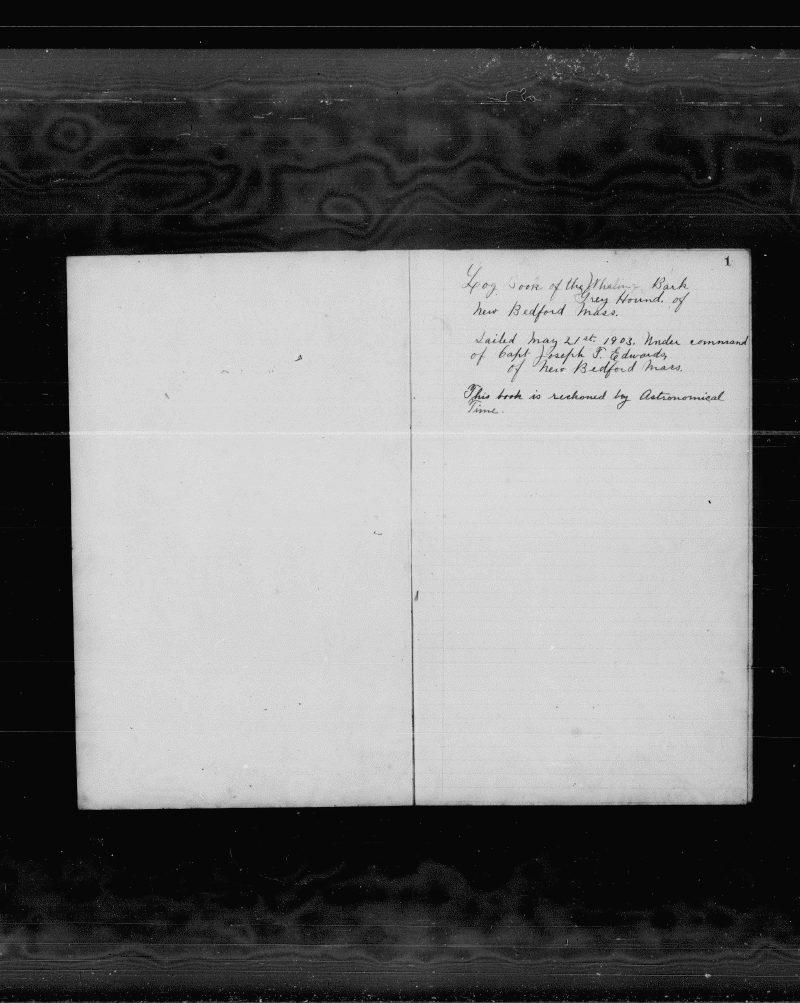 1
Log Book of the Whaling Bark
Grey Hound. of
New Bedford Mass.
Sailed May 21st. 1903. Under command
of Capt Joseph T. Edwards,
of New Bedford Mass.
This book is reckoned by Astronomical
Time.